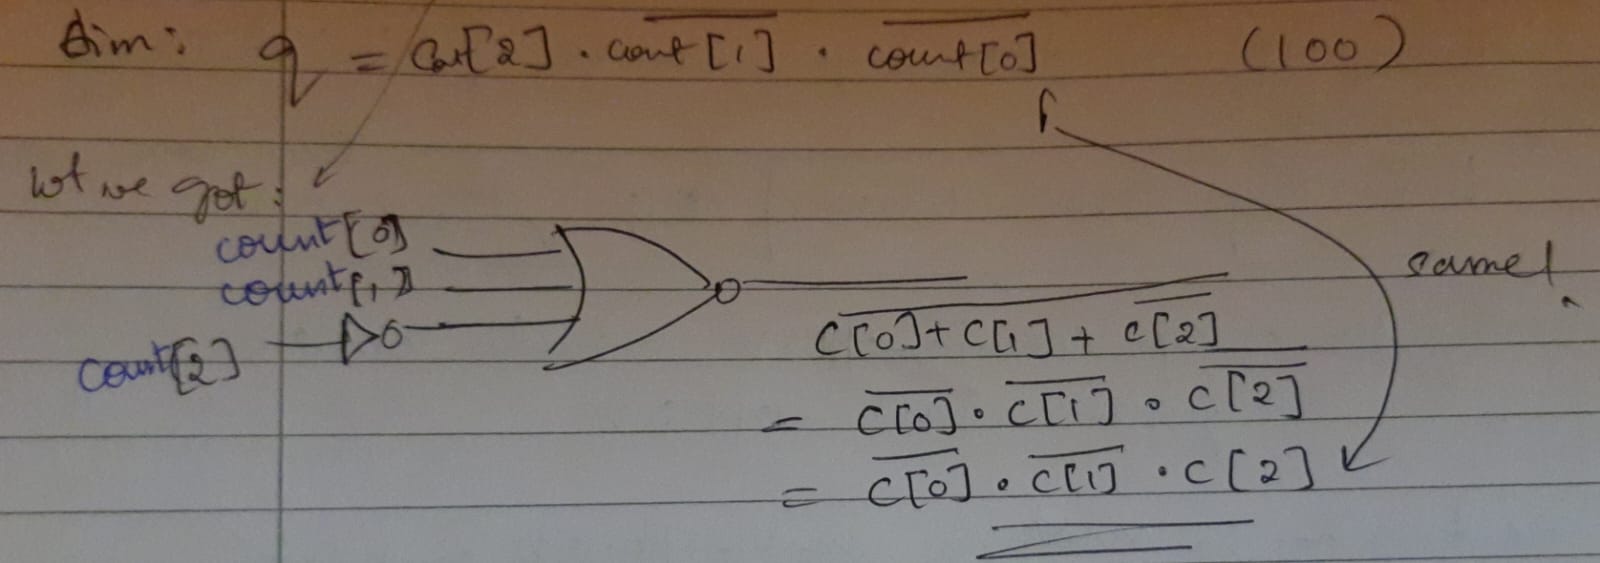 Aim: q = Cou[2] . count[1] . count[0] (100)
wt we got:
count[0]
count[1]
count[2]
same!
C[0] + C[1] + C[2]
= C[0] . C[1] . C[2]
= C[0] . C[1] . C[2]